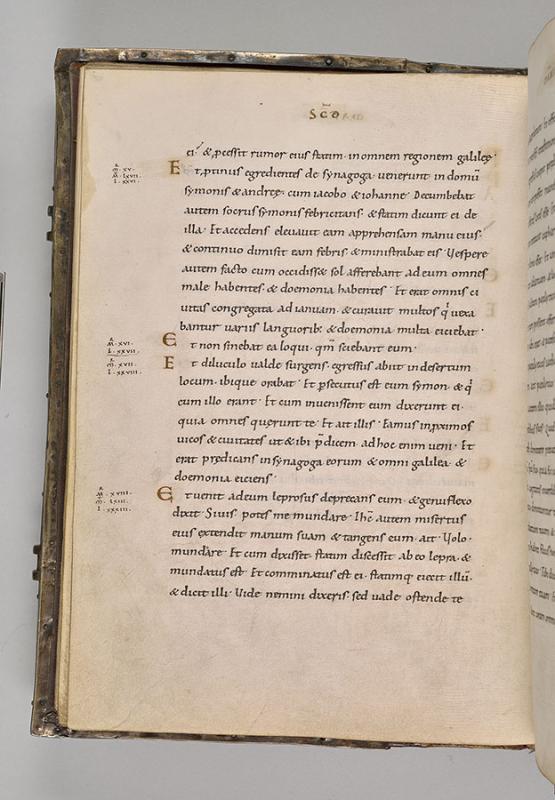 SCD̄O
ei · & p̱cessit rumor eius statim · in omnem regionem galileę ·
m̄ · xv ·
M̄ · lxvii ·
l · xxvi ·
Et, p̱tinus egredientes de synagoga · venerunt in domū
symonis & andreę · cum iacobo & iohanne · Decumbebat
autem socrus symonis febricitans · & statim dicunt ei de
illa · Et accedens eleuauit eam apprehensam manu eius ·
& continuo dimisit eam febris · & ministrabat eis · Vespere
autem facto cum occidiss& sol afferebant ad eum omnes
male habentes · & doemonia habentes · Et erat omnis ci
uitas congregata ad ianuam · & curauit multos q̇ uexa
bantur uariis languorib; & doemonia multa eiciebat ·
M̄ · xvi ·
l · xxvii ·
Et non sinebat ea loqui · qm̄ sciebant eum ·
m̄ · xvii ·
l · xxviii ·
Et diluculo ualde surgens · egressus abiit in desertum
locum · ibique orabat · Et p̱secutus est eum symon · & q̇
cum illo erant · Et cum inuenissent eum dixerunt ei ·
quia omnes querunt te · Et ait illis · Eamus in p̱ximos
uicos & ciuitates ut & ibi p̄dicem · ad hoc enim ueni · Et
erat predicans in synagoga eorum & omni galilea · &
doemonia eiciens ·
M̄ · xviii ·
m̄ · lxiii ·
l · xxxiii ·
Et uenit ad eum leprosus deprecans eum · & genu flexo
dixit · Si uis · potes me mundare · Ihc̄ autem misertus
eius extendit manum suam & tangens eum · ait · Volo ·
mundare · Et cum dixisset · statim discessit ab eo lepra · &
mundatus est · Et comminatus est ei · statimq; eiecit illū ·
& dicit illi · Vide nemini dixeris · sed uade ostende te